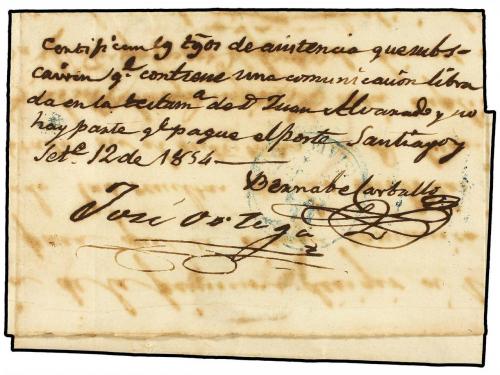 Certifican ls tgos de asistencia que subs-
criven qe. contiene una comunicacion libra
da en la testama de Dn Juan Alvarado y no
hay parte qe pague el porte Santiago y
Sete. 12 de 1854
Bernabe Carballo
José Ortega